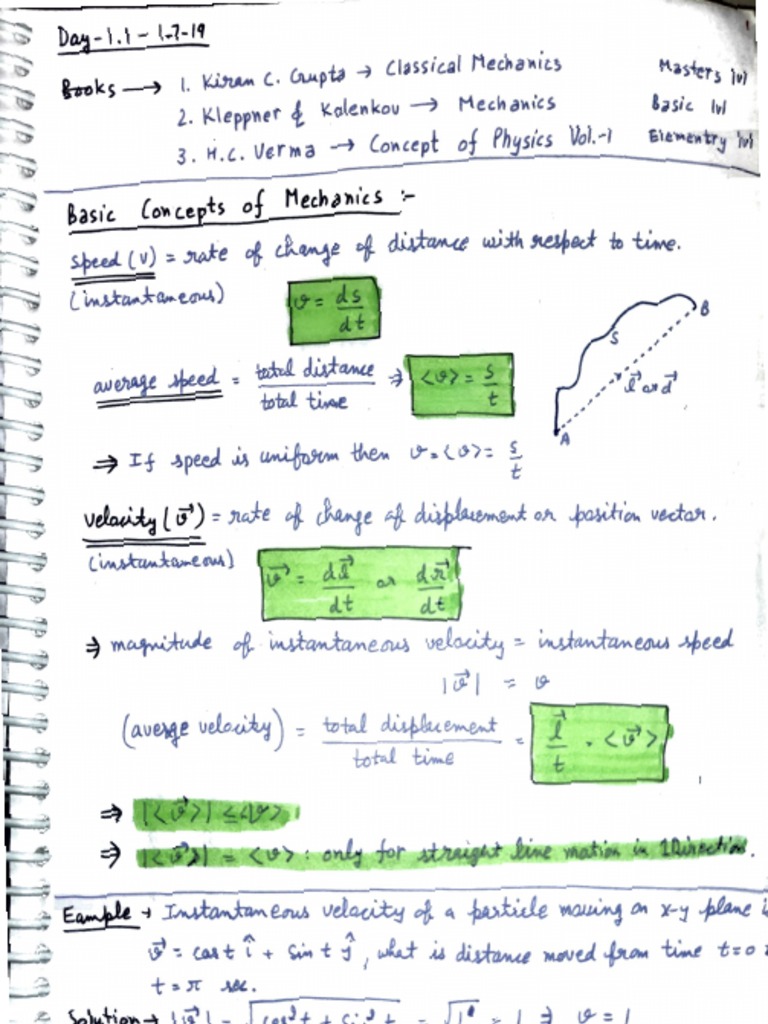 Day-1.1 - 1-7-19
Books → 1. Kiran C. Gupta → Classical Mechanics Masters lvl
2. Kleppner & Kolenkov → Mechanics Basic lvl
3. H.C. Verma → Concept of Physics Vol.-1 Elementry lvl
Basic Concepts of Mechanics :-
speed (v) = rate of change of distance with respect to time.
(instantaneous) v = ds/dt
average speed = total distance/total time ⇒ <v> = s/t
B
S
l⃗ or d⃗
A
⇒ If speed is uniform then v = <v> = s/t
velocity (v⃗) = rate of change of displacement or position vector.
(instantaneous) v⃗ = dl⃗/dt or dr⃗/dt
⇒ magnitude of instantaneous velocity = instantaneous speed
|v⃗| = v
(averge velocity) = total displacement/total time = l⃗/t = <v⃗>
⇒ |<v⃗>| ≤ <v>
⇒ |<v⃗>| = <v> : only for straight line motion in 1Direction.
Eample → Instantaneous velocity of a particle moving on x-y plane is
v⃗ = cos t î + sin t ĵ, what is distance moved from time t=0
t = π sec.
Solution → |v⃗| = √cos² t + sin² t = √1² = 1 ⇒ v = 1